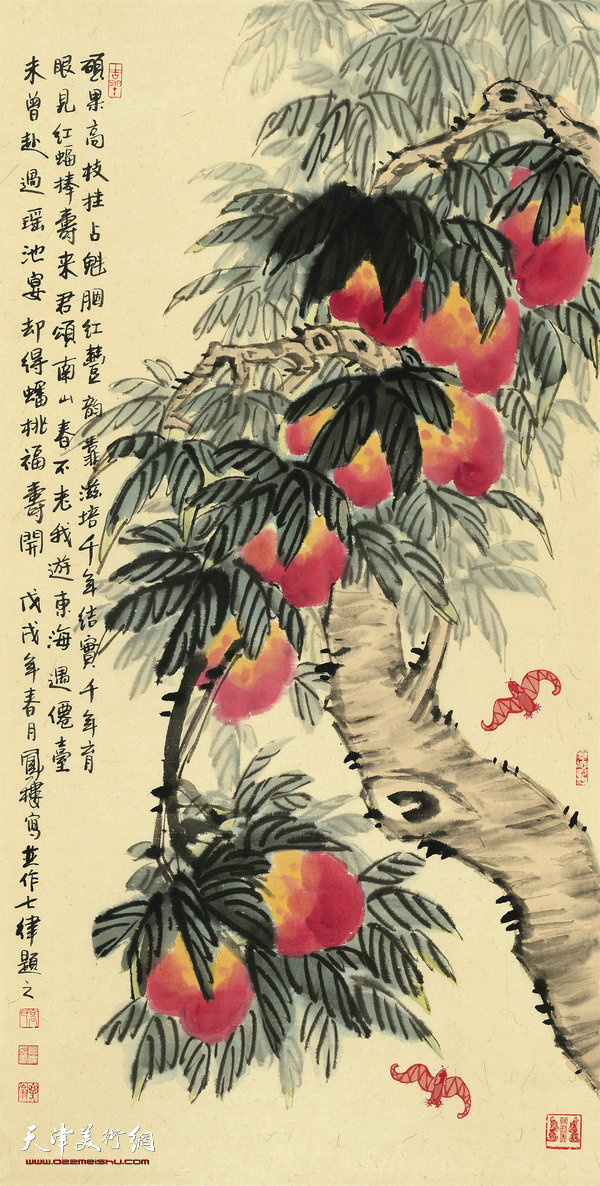 碩果高枝挂占魁胭红豐韵靠滋培千年结實千年育
眼見红蝠捧壽来君頌南山春不老我遊東海遇僊臺
未曾赴過瑶池宴却得蟠桃福壽開 戊戌年春月鳳樓寫並作七律題之
天津美術網
www.022meishu.com